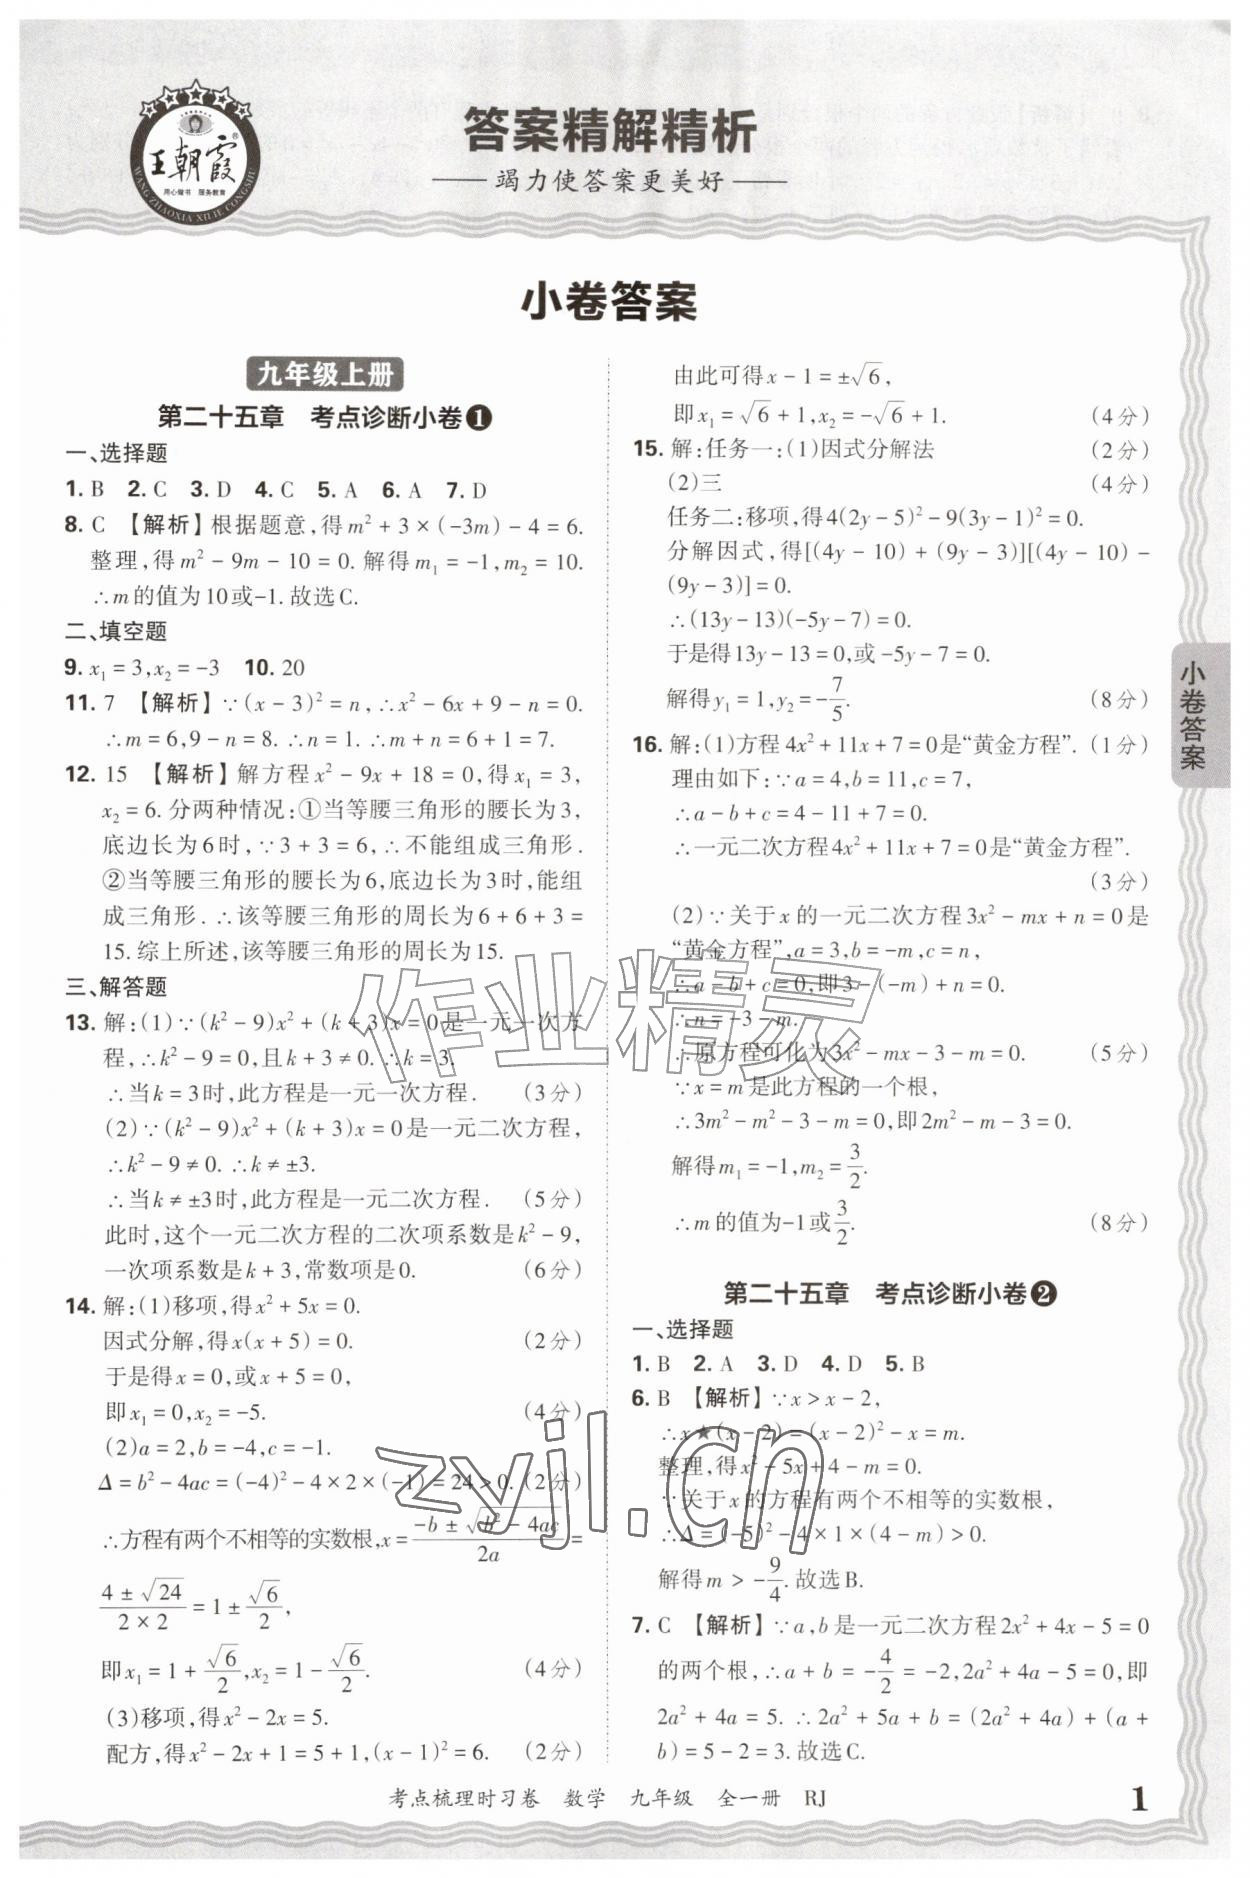 王朝霞®
用心做书 服务教育
WANG ZHAOXIA XILIE CONGSHU
答案精解精析
竭力使答案更美好
小卷答案
九年级上册
第二十五章 考点诊断小卷❶
一、选择题
1. B 2. C 3. D 4. C 5. A 6. A 7. D
8. C 【解析】根据题意,得m²+3×(-3m)-4=6.
整理,得m²-9m-10=0. 解得m₁=-1,m₂=10.
∴m的值为10或-1. 故选C.
二、填空题
9. x₁=3,x₂=-3 10. 20
11. 7 【解析】∵(x-3)²=n,∴x²-6x+9-n=0.
∴m=6,9-n=8. ∴n=1. ∴m+n=6+1=7.
12. 15 【解析】解方程x²-9x+18=0,得x₁=3,
x₂=6. 分两种情况:①当等腰三角形的腰长为3,
底边长为6时,∵3+3=6,∴不能组成三角形.
②当等腰三角形的腰长为6,底边长为3时,能组
成三角形. ∴该等腰三角形的周长为6+6+3=
15. 综上所述,该等腰三角形的周长为15.
三、解答题
13. 解:(1)∵(k²-9)x²+(k+3)x=0是一元一次方
程,∴k²-9=0,且k+3≠0. ∴k=3.
∴当k=3时,此方程是一元一次方程. (3分)
(2)∵(k²-9)x²+(k+3)x=0是一元二次方程,
∴k²-9≠0. ∴k≠±3.
∴当k≠±3时,此方程是一元二次方程. (5分)
此时,这个一元二次方程的二次项系数是k²-9,
一次项系数是k+3,常数项是0. (6分)
14. 解:(1)移项,得x²+5x=0.
因式分解,得x(x+5)=0. (2分)
于是得x=0,或x+5=0,
即x₁=0,x₂=-5. (4分)
(2)a=2,b=-4,c=-1.
Δ=b²-4ac=(-4)²-4×2×(-1)=24>0. (2分)
∴方程有两个不相等的实数根,x=(-b±√(b²-4ac))/2a=
(4±√24)/(2×2)=1±√6/2,
即x₁=1+√6/2,x₂=1-√6/2. (4分)
(3)移项,得x²-2x=5.
配方,得x²-2x+1=5+1,(x-1)²=6. (2分)
由此可得x-1=±√6,
即x₁=√6+1,x₂=-√6+1. (4分)
15. 解:任务一:(1)因式分解法 (2分)
(2)三 (4分)
任务二:移项,得4(2y-5)²-9(3y-1)²=0.
分解因式,得[(4y-10)+(9y-3)][(4y-10)-
(9y-3)]=0.
∴(13y-13)(-5y-7)=0.
于是得13y-13=0,或-5y-7=0.
解得y₁=1,y₂=-7/5. (8分)
16. 解:(1)方程4x²+11x+7=0是“黄金方程”. (1分)
理由如下:∵a=4,b=11,c=7,
∴a-b+c=4-11+7=0.
∴一元二次方程4x²+11x+7=0是“黄金方程”.
(3分)
(2)∵关于x的一元二次方程3x²-mx+n=0是
“黄金方程”,a=3,b=-m,c=n,
∴a-b+c=0,即3-(-m)+n=0.
∴n=-3-m.
∴原方程可化为3x²-mx-3-m=0. (5分)
∵x=m是此方程的一个根,
∴3m²-m²-3-m=0,即2m²-m-3=0.
解得m₁=-1,m₂=3/2.
∴m的值为-1或3/2. (8分)
第二十五章 考点诊断小卷❷
一、选择题
1. B 2. A 3. D 4. D 5. B
6. B 【解析】∵x>x-2,
∴x★(x-2)=(x-2)²-x=m.
整理,得x²-5x+4-m=0.
∵关于x的方程有两个不相等的实数根,
∴Δ=(-5)²-4×1×(4-m)>0.
解得m>-9/4. 故选B.
7. C 【解析】∵a,b是一元二次方程2x²+4x-5=0
的两个根,∴a+b=-4/2=-2,2a²+4a-5=0,即
2a²+4a=5. ∴2a²+5a+b=(2a²+4a)+(a+
b)=5-2=3. 故选C.
小卷答案
作业精灵
zyjl.cn
考点梳理时习卷 数学 九年级 全一册 RJ
1